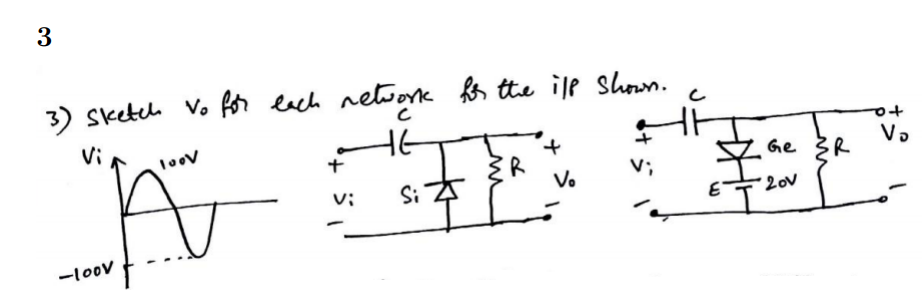 3
3) Sketch Vo for each network for the i/p shown.
Vi 100V
-100V
C
+ +
Vi Si R Vo
- -
C
+ +
Vi Ge R Vo
E 20V
- -